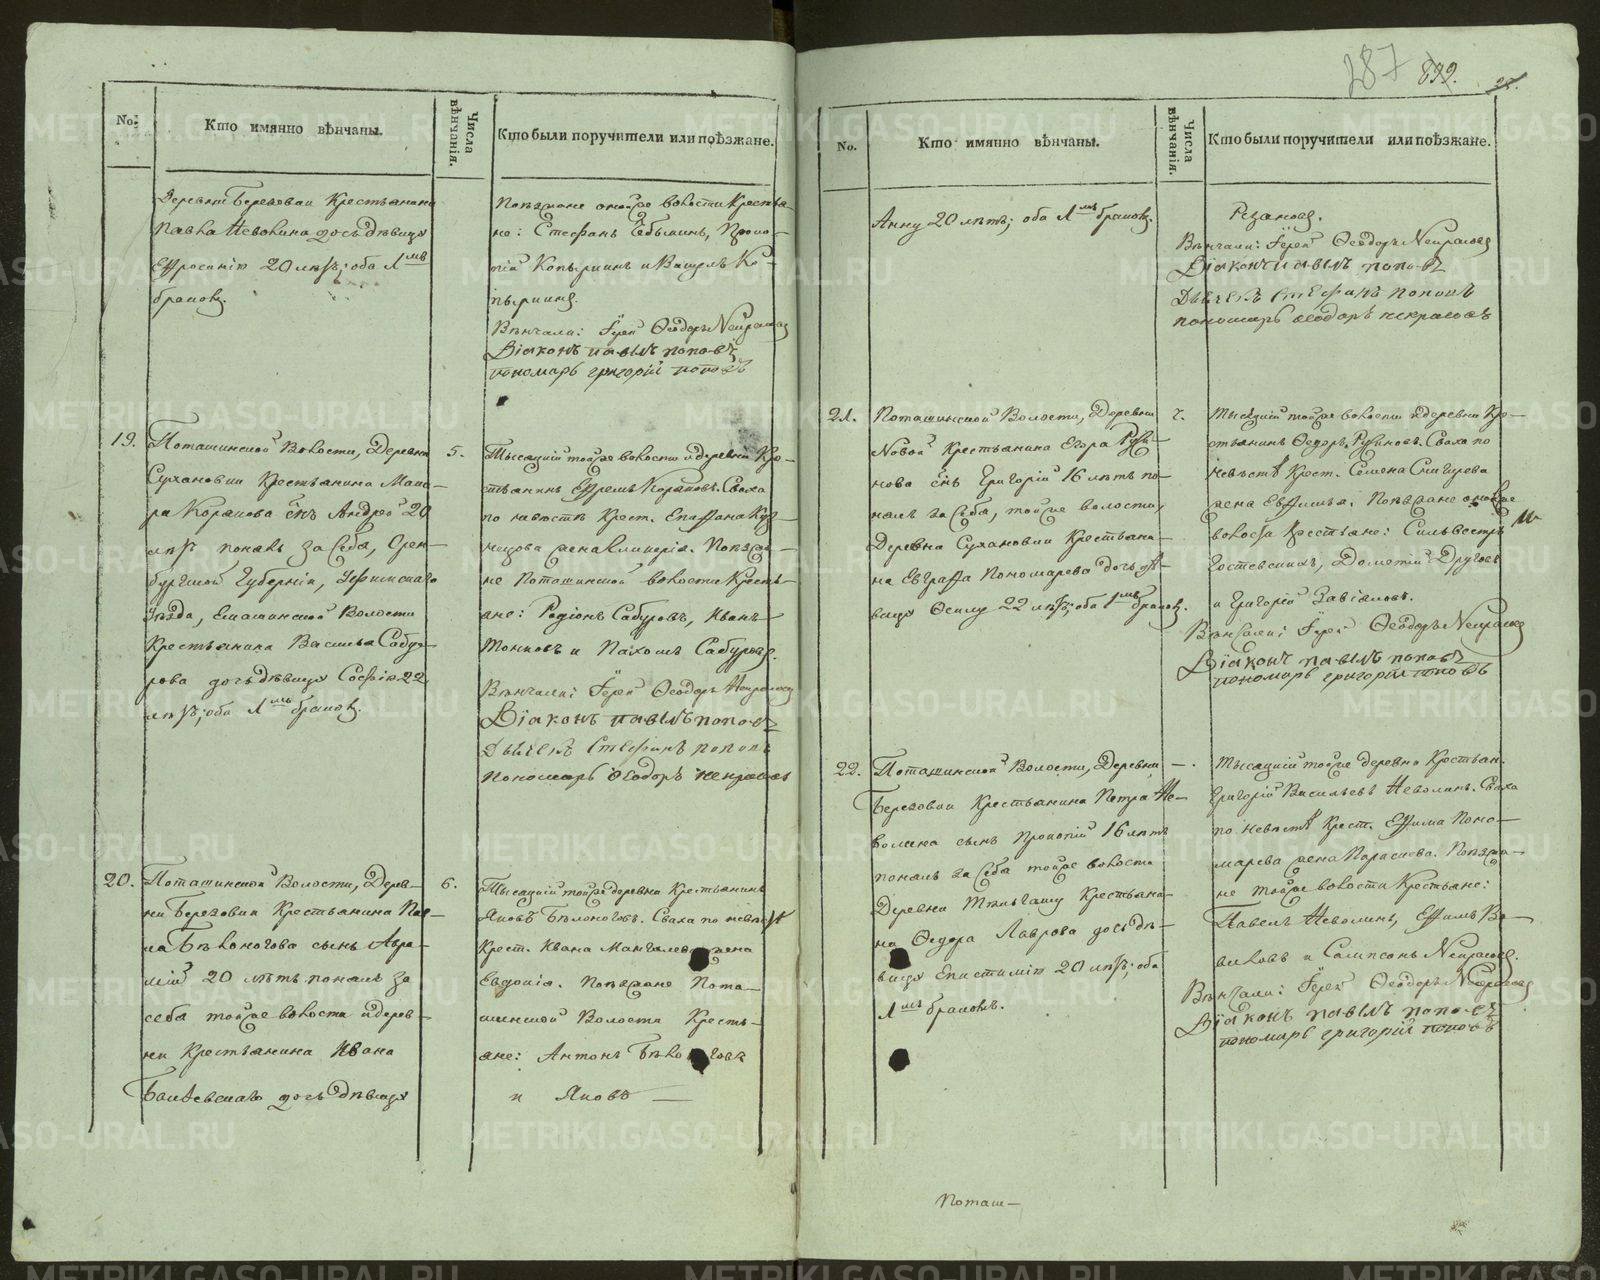 287 899.
No.
Кто имянно вѣнчаны.
Числа вѣнчанія.
Кто были поручители или поѣзжане.
Деревни Березовки Крестьянина
Павла Неволина дочь дѣвицу
Ефросинію 20 лѣтъ; оба 1мъ
бракомъ.
Поезжане оной же волости Крестья-
не: Стефанъ Прокo-
пій Копыринъ и Василь Ко-
пыринъ.
Вѣнчали: Іерей Ѳеодоръ Некрасовъ
Діаконъ Павелъ Поповъ
пономарь григорій поповъ
19.
Поташинской Волости, Деревни
Сухановки Крестьянина Мака-
ра Коракова снъ Андрей 20
лѣтъ понялъ за себя, Орен-
бургской Губерніи, Уфимскаго
уѣзда, Емашинской Волости
Крестьянина Василья Сабу-
рова дочь дѣвицу Софію 22
лѣтъ; оба 1мъ бракомъ.
5.
Тысяцкій той же волости и деревни Кре-
стьянинъ Ефремъ Сваха
по невѣстѣ Крест. Епифана Куз-
нецова жена Поезжа-
не Поташинской волости Кресть-
яне: Родіонъ Сабуровъ, Иванъ
и Пахомъ Сабуровъ.
Вѣнчали: Іерей Ѳеодоръ Некрасовъ
Діаконъ Павелъ Поповъ
Дьячекъ Стефанъ Поповъ
Пономарь Ѳеодоръ Некрасовъ
20.
Поташинской Волости, Дерев-
ни Березовки Крестьянина Пав-
ла Бѣлоногова сынъ Авра-
мій 20 лѣтъ понялъ за
себя той же волости и дерев-
ни Крестьянина Ивана
дочь дѣвицу
6.
Тысяцкій той же деревни Крестьянинъ
Яковъ Бѣлоноговъ. Сваха по невѣстѣ
Крест. Ивана жена
Евдокія. Поезжане Пота-
шинской Волости Кресть-
яне: Антонъ Бѣлоноговъ
и Яковъ —
No.
Кто имянно вѣнчаны.
Числа вѣнчанія.
Кто были поручители или поѣзжане.
Анну 20 лѣтъ; оба 1мъ бракомъ.
Резановъ.
Вѣнчали: Іерей Ѳеодоръ Некрасовъ
Діаконъ Павелъ Поповъ
Дьячекъ Стефанъ Поповъ
пономарь Ѳеодоръ Некрасовъ
21.
Поташинской Волости, Деревни
Новой Крестьянина Егора Руси-
нова снъ Григорій 16 лѣтъ по-
нялъ за себя, той же волости,
Деревни Сухановки Крестьяни-
на Евграфа Пономарева дочь дѣ-
вицу 22 лѣтъ; оба 1мъ бракомъ.
7.
Тысяцкій той же волости и деревни Кре-
стьянинъ Ѳедоръ Русиновъ. Сваха по
невѣстѣ Крест. Семена Снигирева
жена Евфимья. Поезжане оной же
волости Крестьяне: Сильвестръ
Дометій Друговъ
и Григорій Завіяловъ.
Вѣнчали: Іерей Ѳеодоръ Некрасовъ
Діаконъ Павелъ Поповъ
пономарь григорій поповъ
22.
Поташинской Волости, Деревни
Березовки Крестьянина Петра Не-
волина сынъ Прокопій 16 лѣтъ
понялъ за себя той же волости
Деревни Крестьяни-
на Ѳедора Лаврова дочь дѣ-
вицу Епистимію 20 лѣтъ; оба
1мъ бракомъ.
—.
Тысяцкій той же деревни Крестьян.
Григорій Васильевъ Неволинъ. Сваха
по невѣстѣ Крест. Ефима Поно-
марева жена Парасковья. Поезжа-
не той же волости Крестьяне:
Павелъ Неволинъ, Ефимъ Во-
и Сампсонъ Некрасовъ.
Вѣнчали: Іерей Ѳеодоръ Некрасовъ
Діаконъ Павелъ Поповъ
пономарь григорій поповъ
Поташ—
METRIKI.GASO-URAL.RU